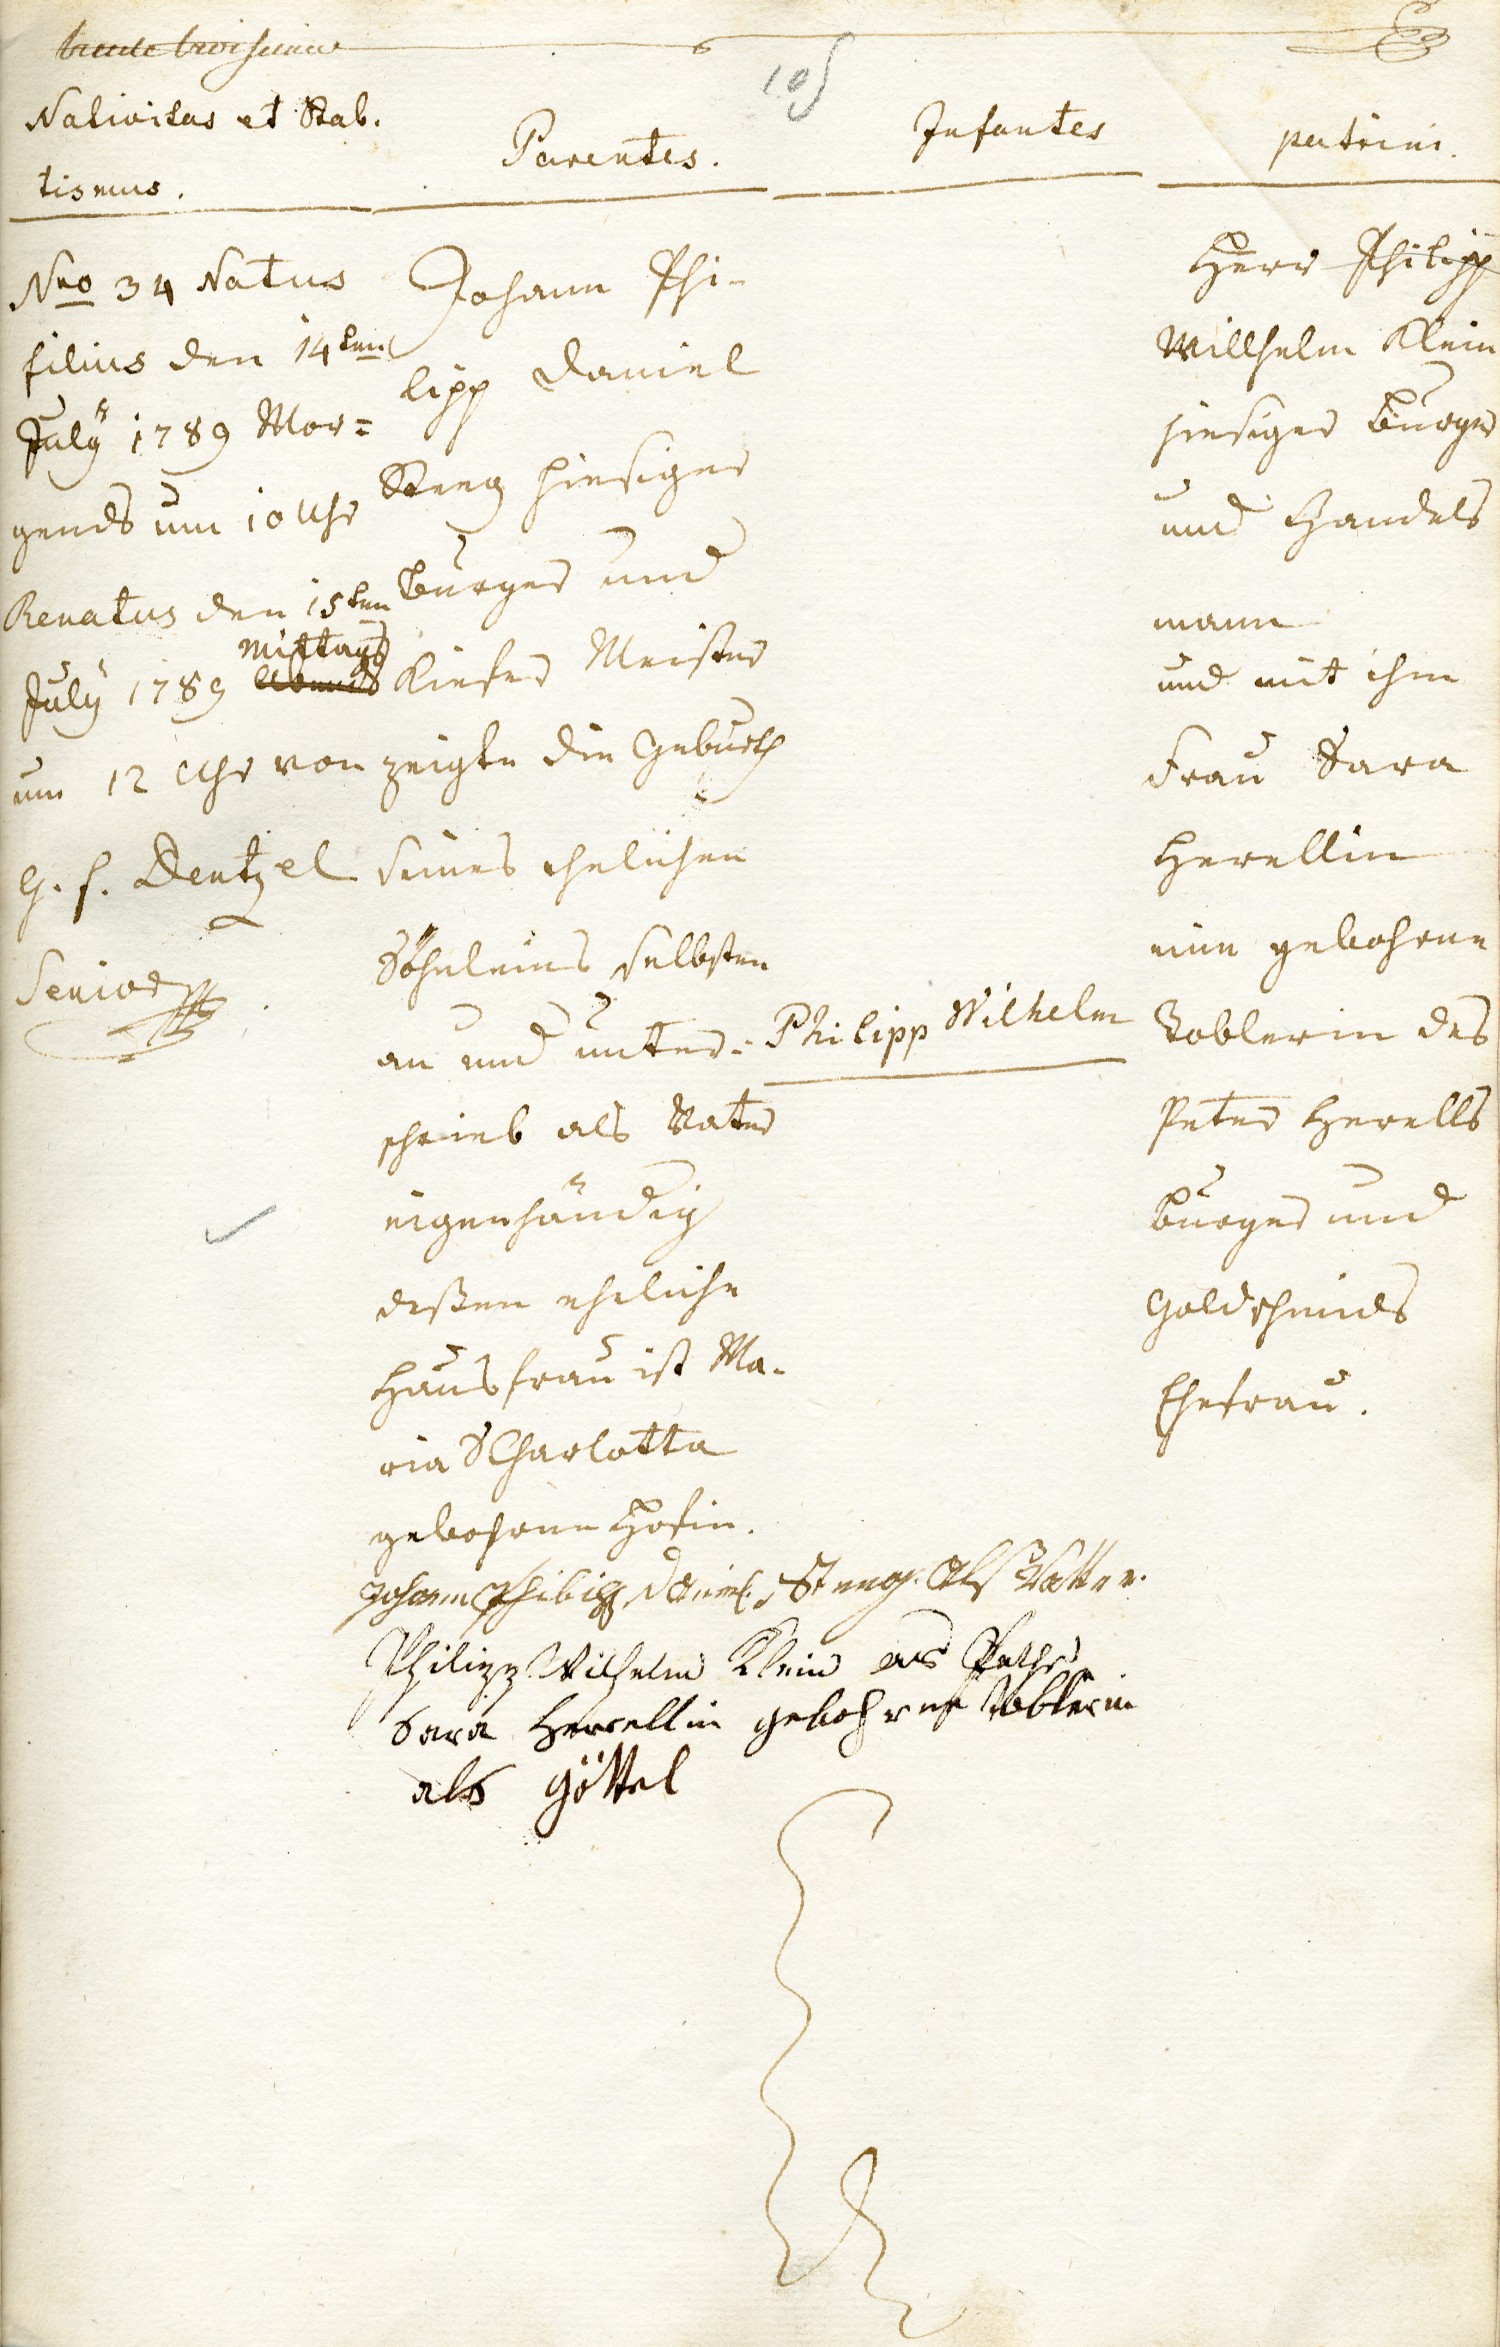 105
Nativitas et Bab.
tismus.
Parentes.
Infantes
patrini.
Nro 34 Natus
filius den 14ten
July 1789 Mor=
gends um 10 Uhr
Renatus den 15ten
Mittags
July 1789 Abends
um 12 Uhr von
G. f. Dentzel
Senior
Johann Phi-
lipp Daniel
Steng hiesiger
Burger und
Kiefer Meister
zeigte die Geburth
seines ehelichen
Söhnleins selbsten
an und unter-
schrieb als Vater
eigenhändig
deßen eheliche
Hausfrau ist Ma-
ria Charlotta
gebohrne Hofin.
Philipp Wilhelm
Herr Philipp
Willhelm Klein
hiesiger Burger
und Handels
mann
und mit ihm
Frau Sara
Herellin
eine gebohrne
Toblerin des
Peter Herells
Burger und
Goldschmids
Ehefrau.
Johann Philipp Daniel Steng. Als Vatter.
Philipp Wilhelm Klein als Pather
Sara Herrellin gebohrne Toblerin
als göttel